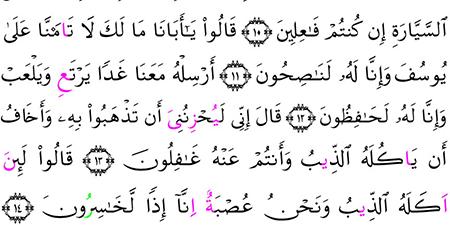 السَّيَّارَةِ إِن كُنتُمْ فَٰعِلِينَ ١٠ قَالُواْ يَٰٓأَبَانَا مَا لَكَ لَا تَامَ۬نَّا عَلَىٰ
يُوسُفَ وَإِنَّا لَهُۥ لَنَٰصِحُونَ ١١ أَرْسِلْهُ مَعَنَا غَدًا يَرْتَعِ وَيَلْعَبْ
وَإِنَّا لَهُۥ لَحَٰفِظُونَ ١٢ قَالَ إِنِّي لَيُحْزِنُنِيَ أَن تَذْهَبُواْ بِهِۦ وَأَخَافُ
أَن يَاكُلَهُ الذِّيبُ وَأَنتُمْ عَنْهُ غَٰفِلُونَ ١٣ قَالُواْ لَئِنَ
اَكَلَهُ الذِّيبُ وَنَحْنُ عُصْبَةٌ اِنَّآ إِذًا لَّخَٰسِرُونَ ١٤